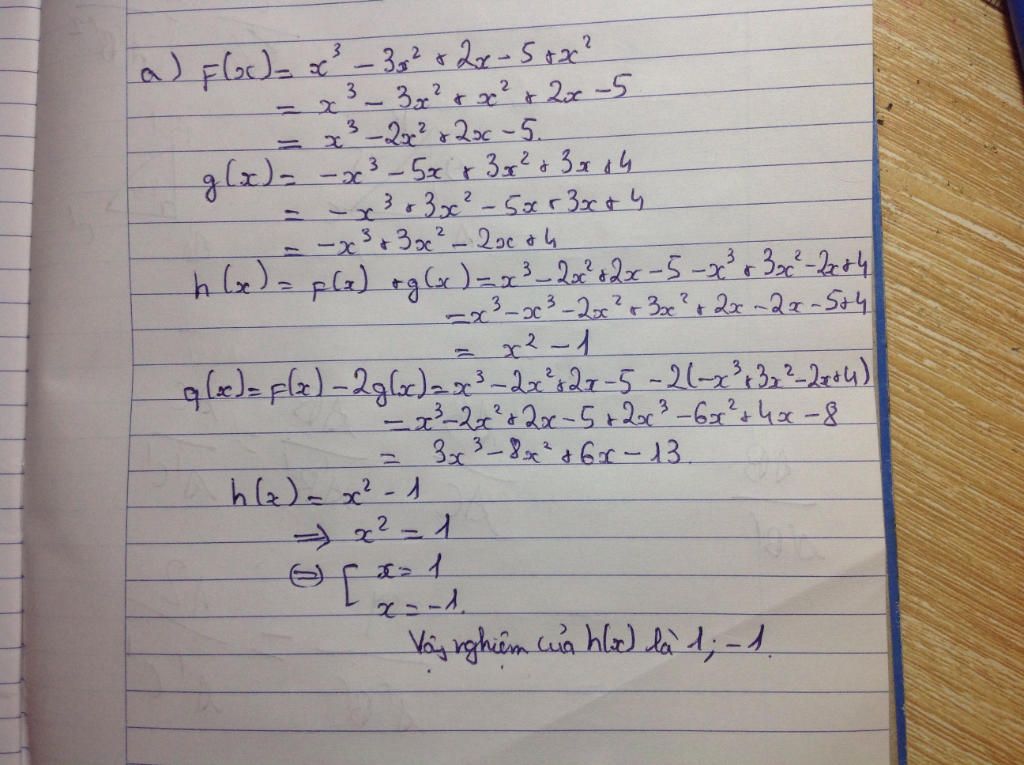 a) F(x) = x³ - 3x² + 2x - 5 + x²
= x³ - 3x² + x² + 2x - 5
= x³ - 2x² + 2x - 5.
g(x) = -x³ - 5x + 3x² + 3x + 4
= -x³ + 3x² - 5x + 3x + 4
= -x³ + 3x² - 2x + 4
h(x) = F(x) + g(x) = x³ - 2x² + 2x - 5 - x³ + 3x² - 2x + 4
= x³ - x³ - 2x² + 3x² + 2x - 2x - 5 + 4
= x² - 1
q(x) = F(x) - 2g(x) = x³ - 2x² + 2x - 5 - 2(-x³ + 3x² - 2x + 4)
= x³ - 2x² + 2x - 5 + 2x³ - 6x² + 4x - 8
= 3x³ - 8x² + 6x - 13.
h(x) = x² - 1
⇒ x² = 1
⇔ [ x = 1
x = -1.
Vậy nghiệm của h(x) là 1; -1.